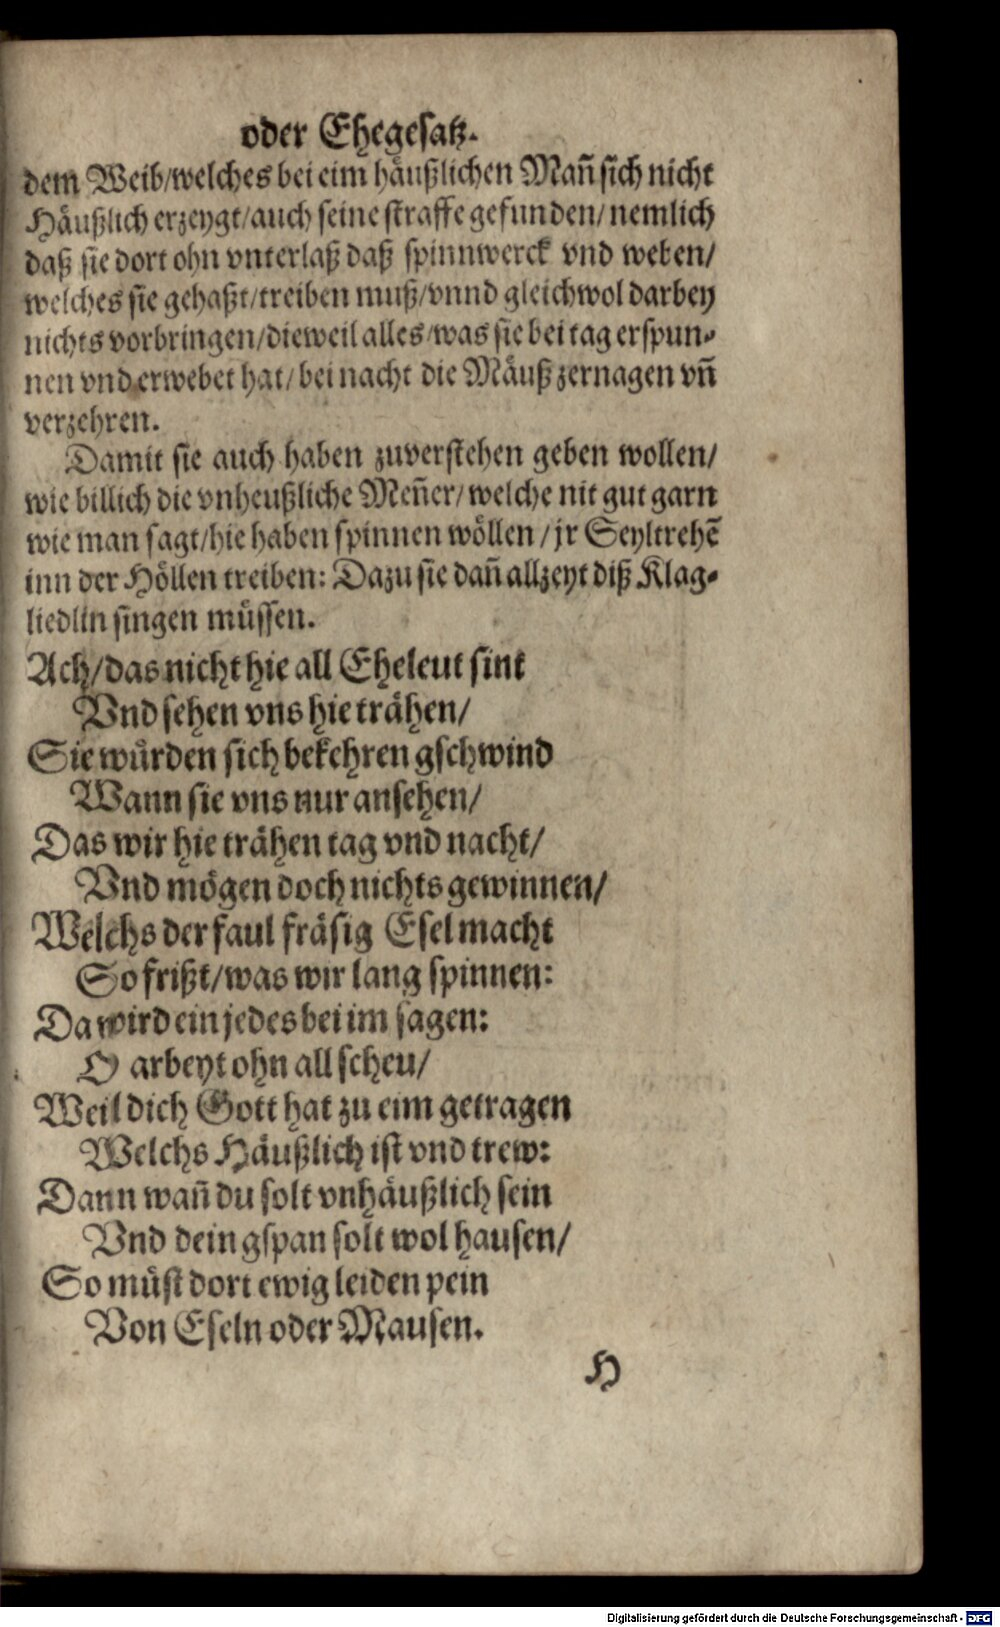 oder Ehegesatz.
dem Weib/welches bei eim häußlichen Mañ sich nicht
Häußlich erzeygt/auch seine straffe gefunden/nemlich
daß sie dort ohn vnterlaß daß spinnwerck vnd weben/
welches sie gehaßt/treiben muß/vnnd gleichwol darbey
nichts vorbringen/dieweil alles/was sie bei tag erspun-
nen vnd erwebet hat/bei nacht die Mäuß zernagen vñ
verzehren.
Damit sie auch haben zuverstehen geben wollen/
wie billich die vnheußliche Meñer/welche nit gut garn
wie man sagt/hie haben spinnen wöllen/jr Seyltrehẽ
inn der Höllen treiben: Dazu sie dañ allzeyt diß Klag-
liedlin singen müssen.
Ach/das nicht hie all Eheleut sint
Vnd sehen vns hie trähen/
Sie würden sich bekehren gschwind
Wann sie vns nur ansehen/
Das wir hie trähen tag vnd nacht/
Vnd mögen doch nichts gewinnen/
Welchs der faul fräsig Esel macht
So frißt/was wir lang spinnen:
Da wird ein jedes bei im sagen:
O arbeyt ohn all scheu/
Weil dich Gott hat zu eim getragen
Welchs Häußlich ist vnd trew:
Dann wañ du solt vnhäußlich sein
Vnd dein gspan solt wol hausen/
So müst dort ewig leiden pein
Von Eseln oder Mausen.
H
Digitalisierung gefördert durch die Deutsche Forschungsgemeinschaft - DFG